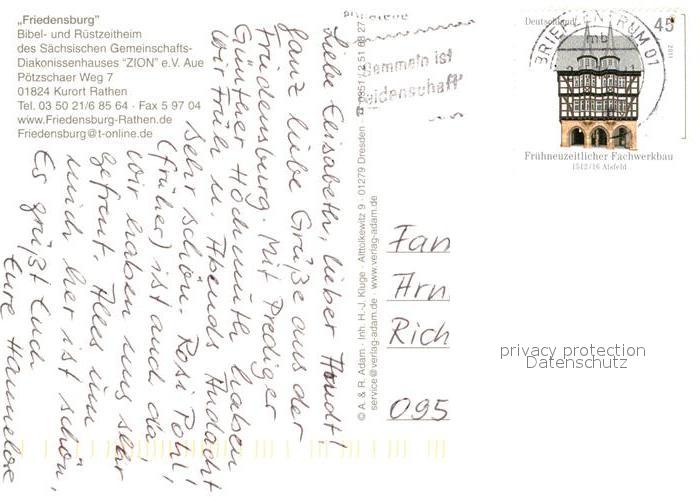 „Friedensburg"
Bibel- und Rüstzeitheim
des Sächsischen Gemeinschafts-
Diakonissenhauses "ZION" e.V. Aue
Pötzschaer Weg 7
01824 Kurort Rathen
Tel. 03 50 21/6 85 64 · Fax 5 97 04
www.Friedensburg-Rathen.de
Friedensburg@t-online.de
Liebe Elisabeth, lieber
ganz liebe Grüße aus der
Friedensburg. Mit Prediger
Günther Hochmuth haben
wir früh u. Abends Andacht
sehr schön. Rosi Pohl,
(früher) ist auch da,
wir haben uns sehr
gefreut. Alles um
mich her ist schön,
Es grüßt Euch
Eure Hannelore
© A. & R. Adam · Inh. H.-J. Kluge · Alttolkewitz 9 · 01279 Dresden
service@verlag-adam.de · www.verlag-adam.de
Sammeln ist
Leidenschaft"
BRIEFZENTRUM 01
mb
Deutschland
45
2011
Frühneuzeitlicher Fachwerkbau
1512/16 Alsfeld
Fam
Arn
Rich
095
privacy protection
Datenschutz